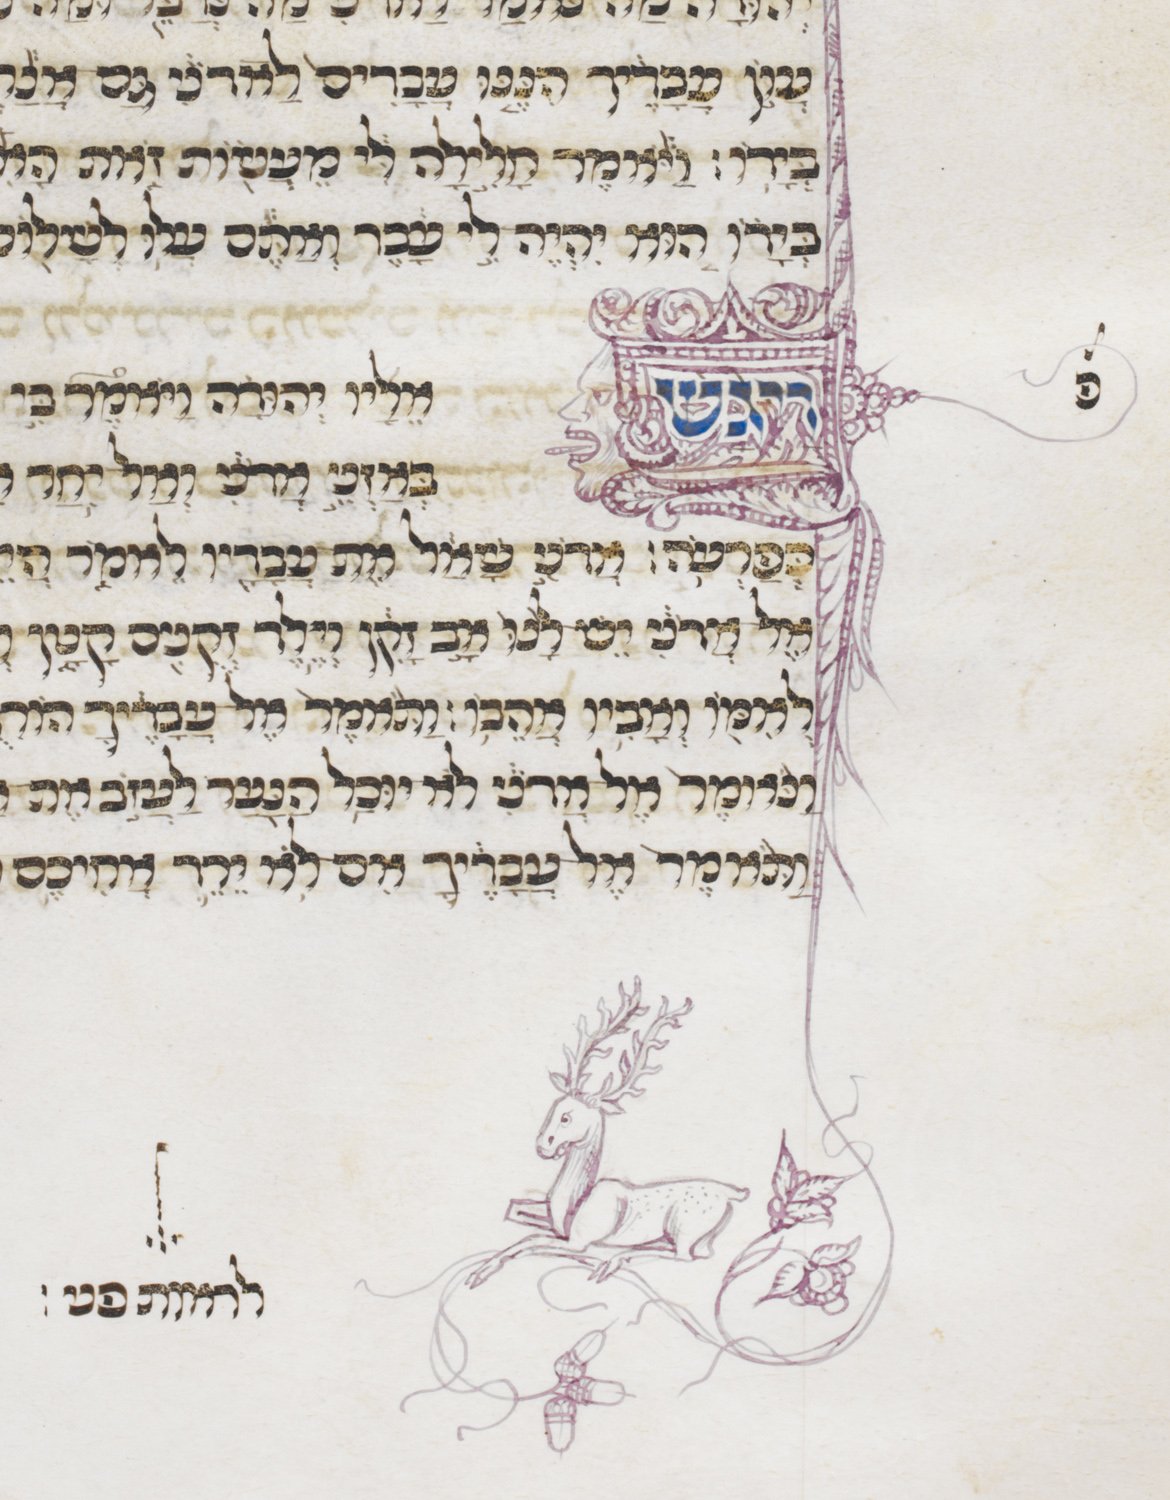 עֲוֹן עֲבָדֶיךָ הִנֶּנּוּ עֲבָדִים לַאדֹנִי גַּם
בְּיָדוֹ׃ וַיֹּאמֶר חָלִילָה לִּי מֵעֲשׂוֹת זֹאת
בְּיָדוֹ הוּא יִהְיֶה לִּי עָבֶד וְאַתֶּם עֲלוּ לְשָׁלוֹם
פ
ויגש אֵלָיו יְהוּדָה וַיֹּאמֶר בִּי
בְּאָזְנֵי אֲדֹנִי וְאַל יִחַר
כְּפַרְעֹה׃ אֲדֹנִי שָׁאַל אֶת עֲבָדָיו לֵאמֹר
אֶל אֲדֹנִי יֶשׁ לָנוּ אָב זָקֵן וְיֶלֶד זְקֻנִים קָטָן
לְאִמּוֹ וְאָבִיו אֲהֵבוֹ׃ וַתֹּאמֶר אֶל עֲבָדֶיךָ
וַנֹּאמֶר אֶל אֲדֹנִי לֹא יוּכַל הַנַּעַר לַעֲזֹב אֶת
וַתֹּאמֶר אֶל עֲבָדֶיךָ אִם לֹא יֵרֵד אֲחִיכֶם
לראות פני׃